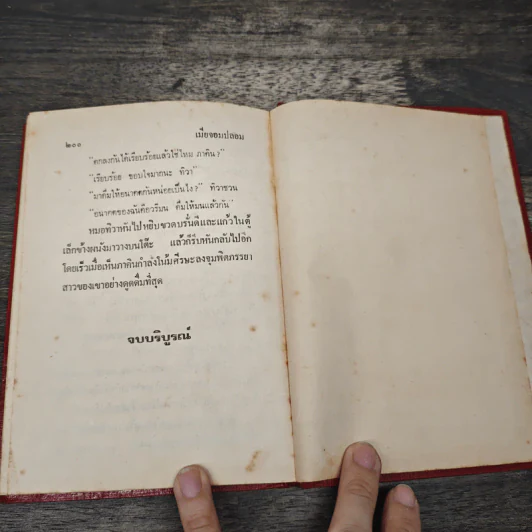 ๒๐๐
เมื่อจอมปลอม
"ตกลงกันได้เรียบร้อยแล้วใช่ไหม ภาคิน?"
"เรียบร้อย ขอบใจมากนะ ทิวา"
"มาดื่มให้อนาคตกันหน่อยเป็นไง?" ทิวาชวน
"อนาคตของฉันคือวรีมน ดื่มให้มนแล้วกัน"
หมอทิวาหันไปหยิบขวดบรั่นดีและแก้วในตู้
เล็กข้างผนังมาวางบนโต๊ะ แล้วก็รีบหันกลับไปอีก
โดยเร็วเมื่อเห็นภาคินกำลังโน้มศีรษะลงจุมพิตภรรยา
สาวของเขาอย่างดูดดื่มที่สุด
จบบริบูรณ์